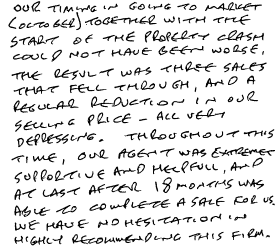 OUR TIMING IN GOING TO MARKET
(OCTOBER) TOGETHER WITH THE
START OF THE PROPERTY CRASH
COULD NOT HAVE BEEN WORSE,
THE RESULT WAS THREE SALES
THAT FELL THROUGH, AND A
REGULAR REDUCTION IN OUR
SELLING PRICE - ALL VERY
DEPRESSING. THROUGHOUT THIS
TIME, OUR AGENT WAS EXTREMELY
SUPPORTIVE AND HELPFUL, AND
AT LAST AFTER 18 MONTHS WAS
ABLE TO COMPLETE A SALE FOR US.
WE HAVE NO HESITATION IN
HIGHLY RECOMMENDING THIS FIRM.